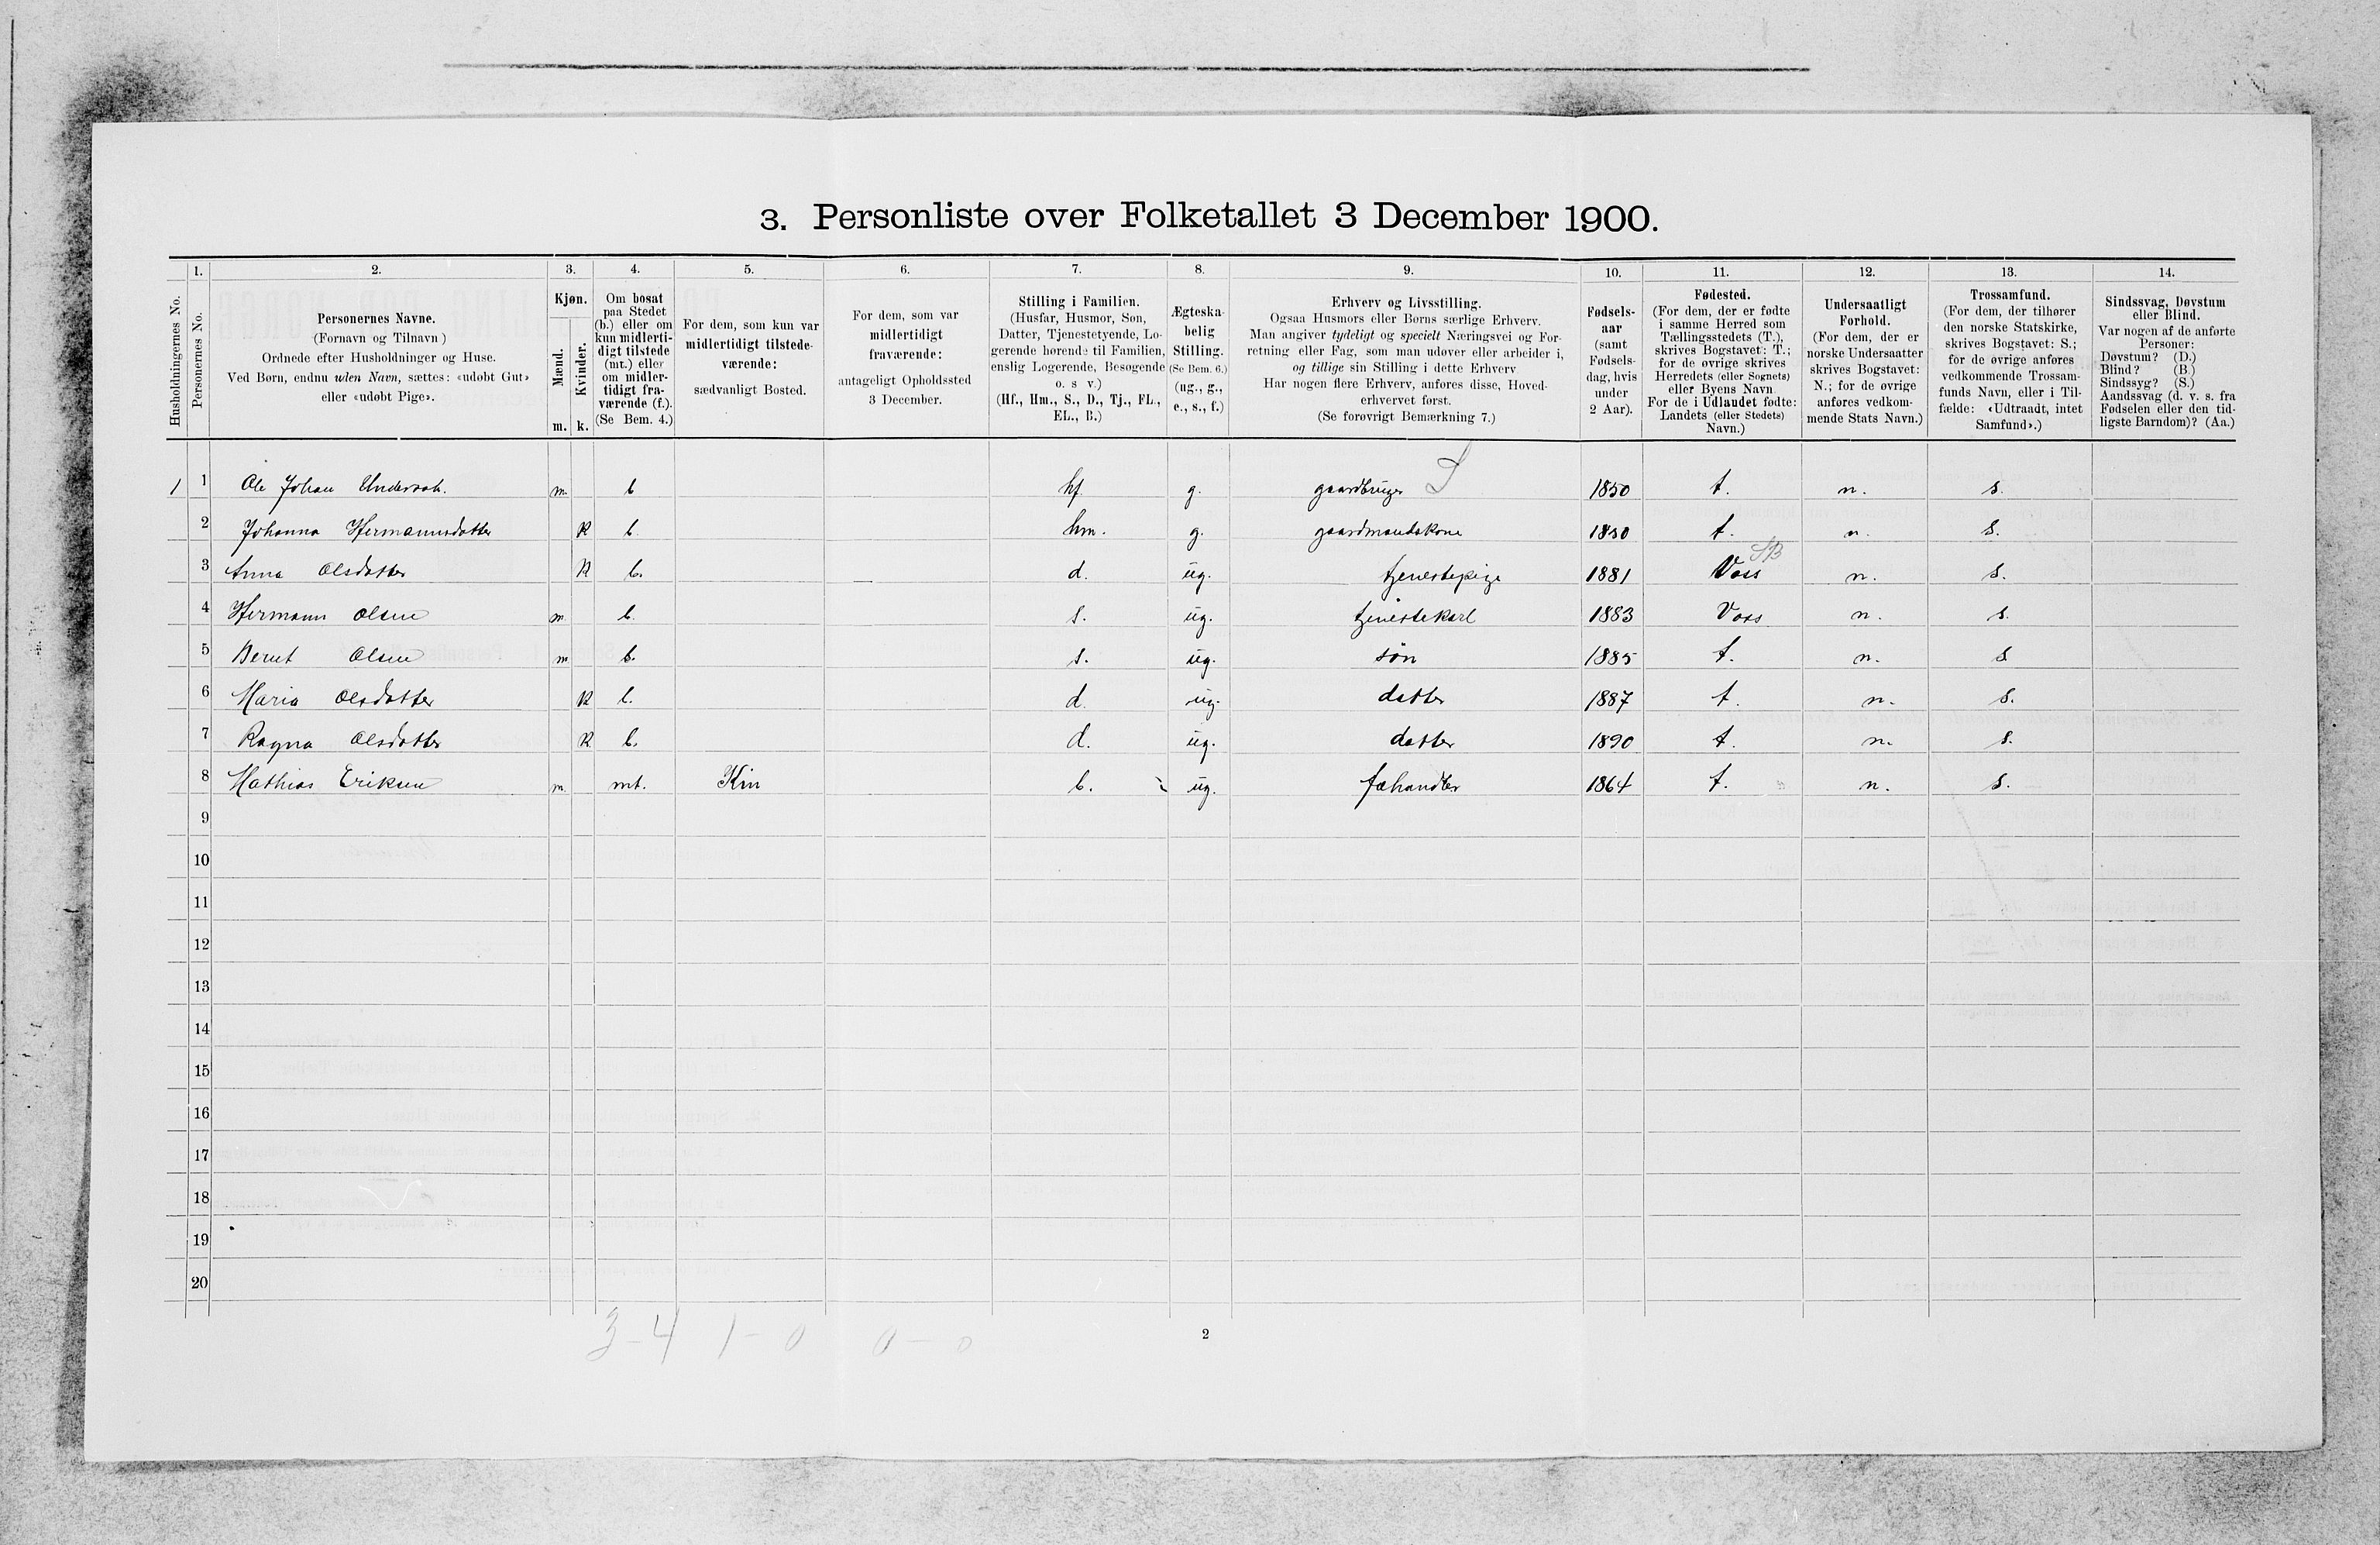 3. Personliste over Folketallet 3 December 1900.
Husholdningernes No.
1. Personernes No.
2. Personernes Navne.
(Fornavn og Tilnavn)
Ordnede efter Husholdninger og Huse.
Ved Børn, endnu uden Navn, sættes: «udøbt Gut»
eller «udøbt Pige».
3. Kjøn.
Mænd. m.
Kvinder. k.
4. Om bosat
paa Stedet
(b.) eller om
kun midlerti-
digt tilstede
(mt.) eller
om midler-
tidigt fra-
værende (f.).
(Se Bem. 4.)
5. For dem, som kun var
midlertidigt tilstede-
værende:
sædvanligt Bosted.
6. For dem, som var
midlertidigt
fraværende:
antageligt Opholdssted
3 December.
7. Stilling i Familien.
(Husfar, Husmor, Søn,
Datter, Tjenestetyende, Lo-
gerende hørende til Familien,
enslig Logerende, Besøgende
o. s v.)
(Hf., Hm., S., D., Tj., FL.,
EL., B.)
8. Ægteska-
belig
Stilling.
(Se Bem. 6.)
(ug., g.,
e., s., f.)
9. Erhverv og Livsstilling.
Ogsaa Husmors eller Børns særlige Erhverv.
Man angiver tydeligt og specielt Næringsvei og For-
retning eller Fag, som man udøver eller arbeider i,
og tillige sin Stilling i dette Erhverv
Har nogen flere Erhverv, anføres disse, Hoved-
erhvervet først.
(Se forøvrigt Bemærkning 7.)
10. Fødsels-
aar
(samt
Fødsels-
dag, hvis
under
2 Aar).
11. Fødested.
(For dem, der er fødte
i samme Herred som
Tællingsstedets (T.),
skrives Bogstavet: T.;
for de øvrige skrives
Herredets (eller Sognets)
eller Byens Navn
For de i Udlandet fødte:
Landets (eller Stedets)
Navn.)
12. Undersaatligt
Forhold.
(For dem, der er
norske Undersaatter
skrives Bogstavet:
N.; for de øvrige
anføres vedkom-
mende Stats Navn.)
13. Trossamfund.
(For dem, der tilhører
den norske Statskirke,
skrives Bogstavet: S.;
for de øvrige anføres
vedkommende Trossam-
funds Navn, eller i Til-
fælde: «Udtraadt, intet
Samfund».)
14. Sindssvag, Døvstum
eller Blind.
Var nogen af de anførte
Personer:
Døvstum? (D.)
Blind? (B.)
Sindssyg? (S.)
Aandssvag (d. v. s. fra
Fødselen eller den tid-
ligste Barndom)? (Aa.)
1 1 Ole Johan m. b hf. g. gaardbruger S 1850 t. n. s.
2 Johanna Hermannsdatter K b. hm. g. gaardmandskone 1850 t. n. s.
3 Anna Olsdatter K b. d. ug. tjenestepige 1881 Voss SB n. s.
4 Hermann Olsen m b. s. ug. tjenestekarl 1883 Voss n. s.
5 Bernt Olsen m b. s. ug. søn 1885 t. n. s
6 Maria Olsdatter K b. d. ug. datter 1887 t. n. s.
7 Ragna Olsdatter K b. d. ug. datter 1890 t. n. s.
8 Mathias Eriksen m. mt. Kin b. ug. fæhandler 1864 t. n. s.
9
10
11
12
13
14
15
16
17
18
19
20
3-4 1-0 0-0
2